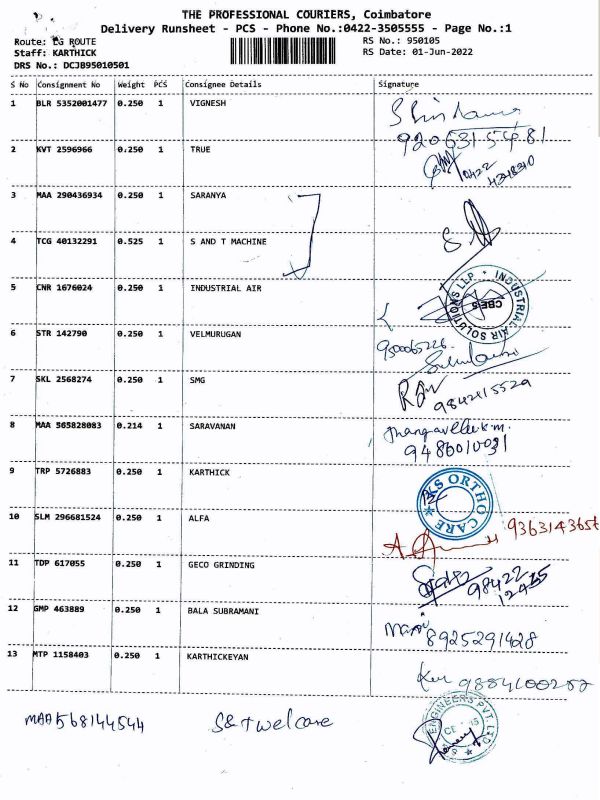 THE PROFESSIONAL COURIERS, Coimbatore
Delivery Runsheet - PCS - Phone No.:0422-3505555 - Page No.:1
Route: LG ROUTE
Staff: KARTHICK
DRS No.: DCJB95010501
RS No.: 950105
RS Date: 01-Jun-2022
S No Consignment No Weight PCS Consignee Details Signature
1 BLR 5352001477 0.250 1 VIGNESH
9206315481
2 KVT 2596966 0.250 1 TRUE
0422
4348340
3 MAA 290436934 0.250 1 SARANYA
4 TCG 40132291 0.525 1 S AND T MACHINE
5 CNR 1676024 0.250 1 INDUSTRIAL AIR
INDUSTRIAL AIR SOLUTIONS LLP * CBE
6 STR 142790 0.250 1 VELMURUGAN
7 SKL 2568274 0.250 1 SMG
9842415529
8 MAA 565828083 0.214 1 SARAVANAN
9486010031
9 TRP 5726883 0.250 1 KARTHICK
KS ORTHO CARE
10 SLM 296681524 0.250 1 ALFA
11 TDP 617055 0.250 1 GECO GRINDING
98422
12415
12 GMP 463889 0.250 1 BALA SUBRAMANI
8925291428
13 MTP 1158403 0.250 1 KARTHICKEYAN
9884100252
MAA 568144544 S&T welcare
ENGINEERS PVT. LTD